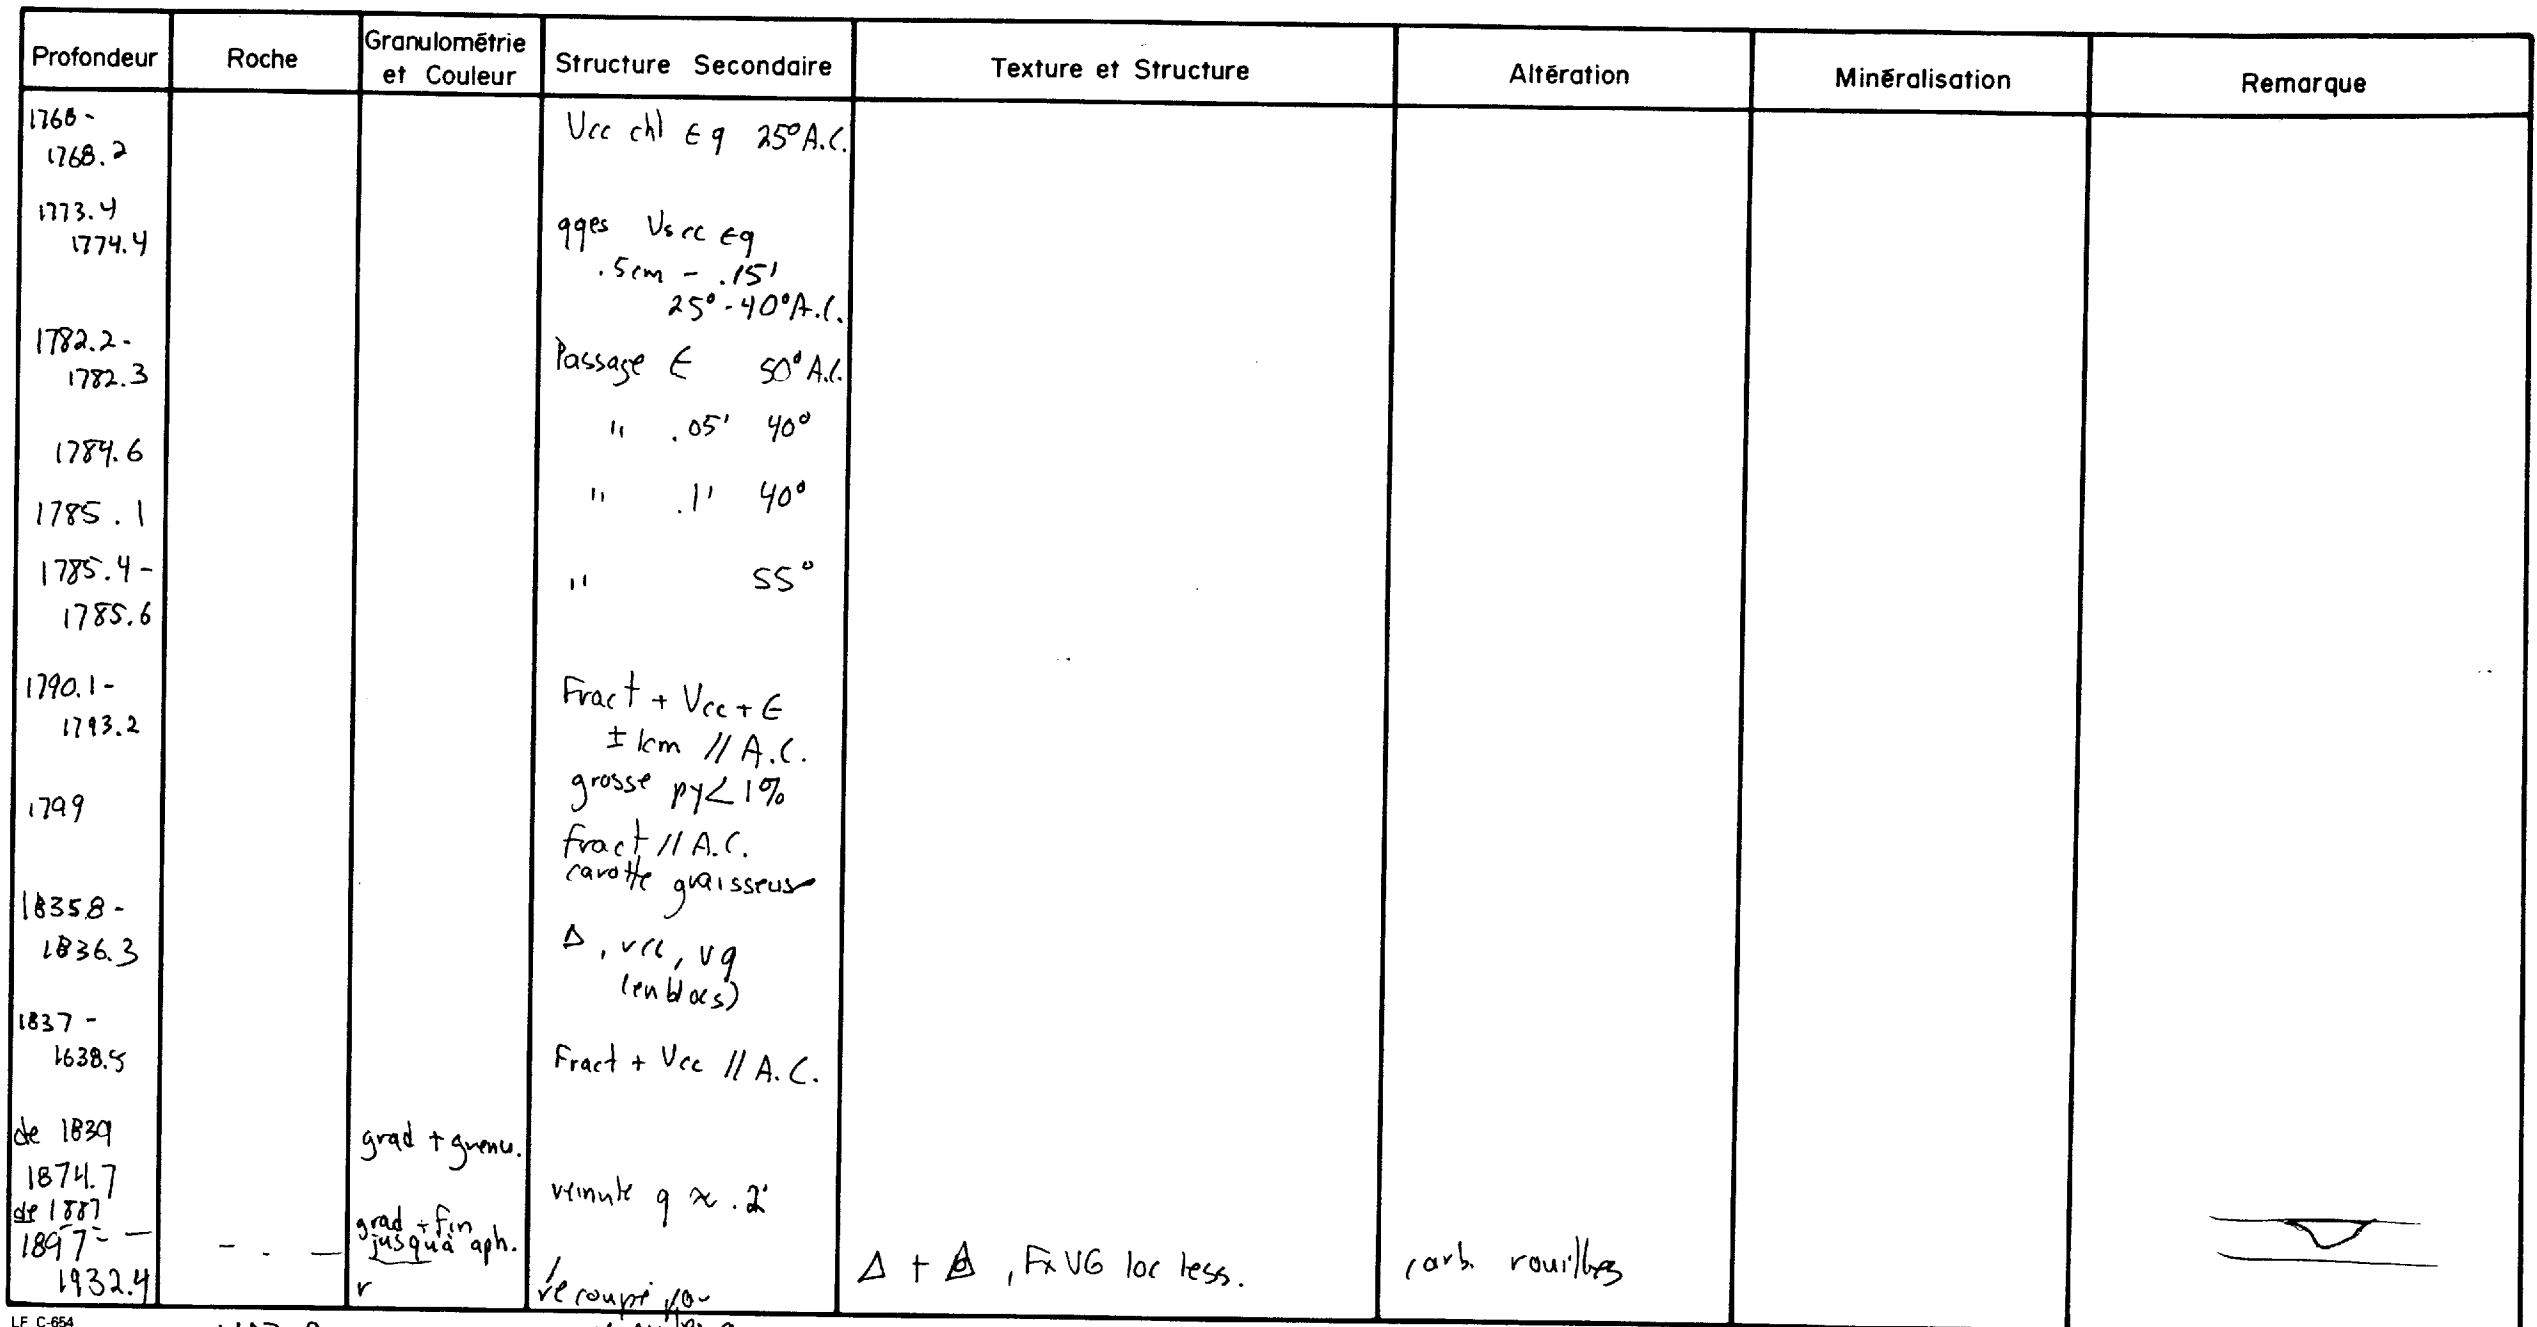 Profondeur Roche Granulométrie et Couleur Structure Secondaire Texture et Structure Altération Minéralisation Remarque
1768 - Vcc chl E q 25° A.C.
1768.2
1773.4 qqes Vs cc E q
1774.4 .5cm - .15'
25° - 40° A.C.
1782.2 - Passage E 50° A.C.
1782.3
" .05' 40°
1784.6
1785.1 " .1' 40°
1785.4 - " 55°
1785.6
1790.1 - Fract + Vcc + E
1793.2 ± 1cm // A.C.
grosse py < 1%
1799
fract // A.C.
carotte graisseuse
1835.8 -
1836.3 Δ, vcc, vq
(en blocs)
1837 -
1638.5 Fract + Vcc // A.C.
de 1839 grad + grenu.
1874.7 veinule q ≈ .2'
de 1887 grad + fin
1897 - jusqu'à aph.
1932.4 r récoupé Δ + Δ, Fx VG loc less. carb. rouillées
LF C-654